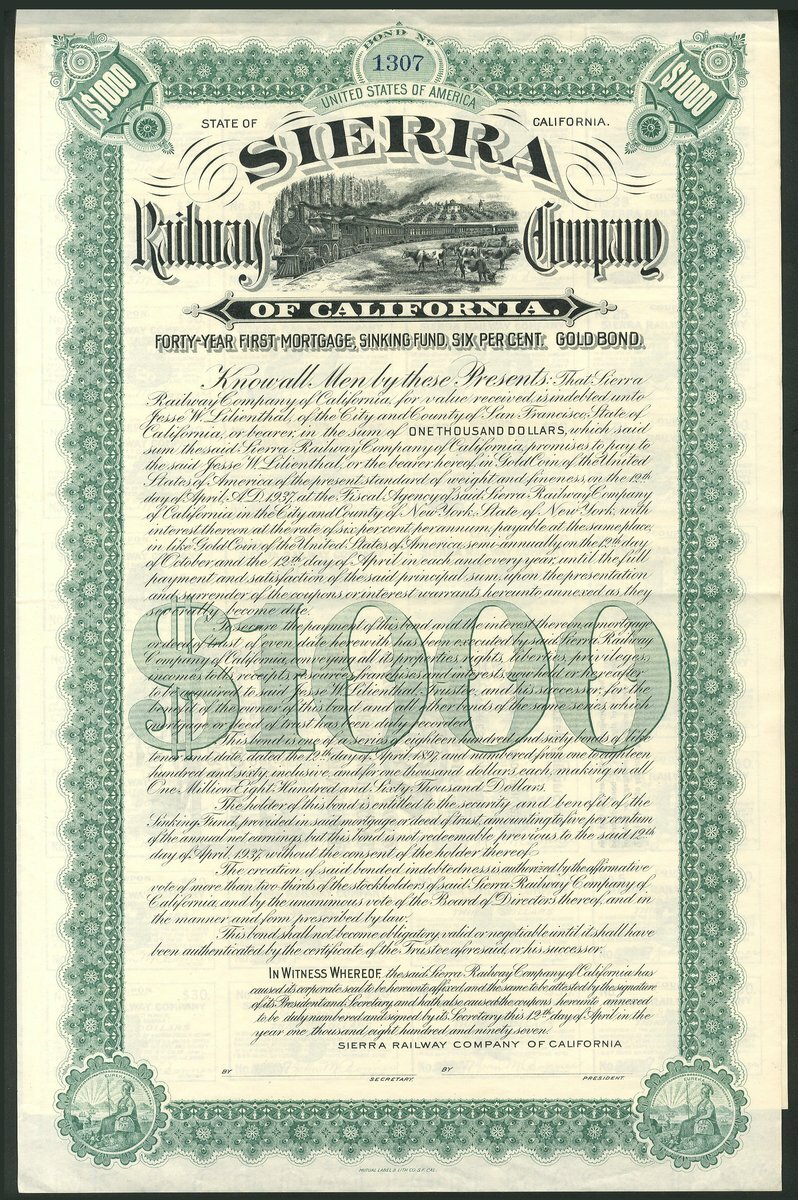 BOND No
1307
UNITED STATES OF AMERICA
$1000
$1000
STATE OF
CALIFORNIA.
SIERRA
Railway Company
OF CALIFORNIA.
FORTY-YEAR FIRST MORTGAGE, SINKING FUND, SIX PER CENT. GOLD BOND.
Know all Men by these Presents: That Sierra
Railway Company of California, for value received, is indebted unto
Jesse W. Lilienthal, of the City and County of San Francisco, State of
California, or bearer, in the sum of ONE THOUSAND DOLLARS, which said
sum the said Sierra Railway Company of California, promises to pay to
the said Jesse W. Lilienthal, or the bearer hereof, in Gold Coin of the United
States of America of the present standard of weight and fineness, on the 12th
day of April, A.D. 1937, at the Fiscal Agency of said Sierra Railway Company
of California in the City and County of New York, State of New York, with
interest thereon at the rate of six per cent per annum, payable at the same place,
in like Gold Coin of the United States of America, semi-annually, on the 12th day
of October, and the 12th day of April, in each and every year, until the full
payment and satisfaction of the said principal sum, upon the presentation
and surrender of the coupons or interest warrants hereunto annexed as they
severally become due.
$1000
To secure the payment of this bond and the interest thereon, a mortgage
or deed of trust of even date herewith has been executed by said Sierra Railway
Company of California, conveying all its properties, rights, liberties, privileges,
incomes, tolls, receipts, resources, franchises and interests, now held or hereafter
to be acquired to said Jesse W. Lilienthal, Trustee, and his successor, for the
benefit of the owner of this bond and all other bonds of the same series, which
mortgage or deed of trust has been duly recorded.
This bond is one of a series of eighteen hundred and sixty bonds of like
tenor and date, dated the 12th day of April, 1897, and numbered from one to eighteen
hundred and sixty, inclusive, and for one thousand dollars each, making in all
One Million Eight Hundred and Sixty Thousand Dollars.
The holder of this bond is entitled to the security and benefit of the
Sinking Fund, provided in said mortgage or deed of trust, amounting to five per centum
of the annual net earnings, but this bond is not redeemable previous to the said 12th
day of April, 1937, without the consent of the holder thereof.
The creation of said bonded indebtedness is authorized by the affirmative
vote of more than two-thirds of the stockholders of said Sierra Railway Company of
California, and by the unanimous vote of the Board of Directors thereof, and in
the manner and form prescribed by law.
This bond shall not become obligatory, valid or negotiable until it shall have
been authenticated by the certificate of the Trustee aforesaid, or his successor.
IN WITNESS WHEREOF, the said Sierra Railway Company of California has
caused its corporate seal to be hereunto affixed, and the same to be attested by the signature
of its President and Secretary, and hath also caused the coupons hereunto annexed
to be duly numbered and signed by its Secretary this 12th day of April in the
year one thousand, eight hundred and ninety seven.
SIERRA RAILWAY COMPANY OF CALIFORNIA
BY
BY
SECRETARY.
PRESIDENT.
EUREKA
EUREKA
MUTUAL LABEL & LITH CO. S.F. CAL.